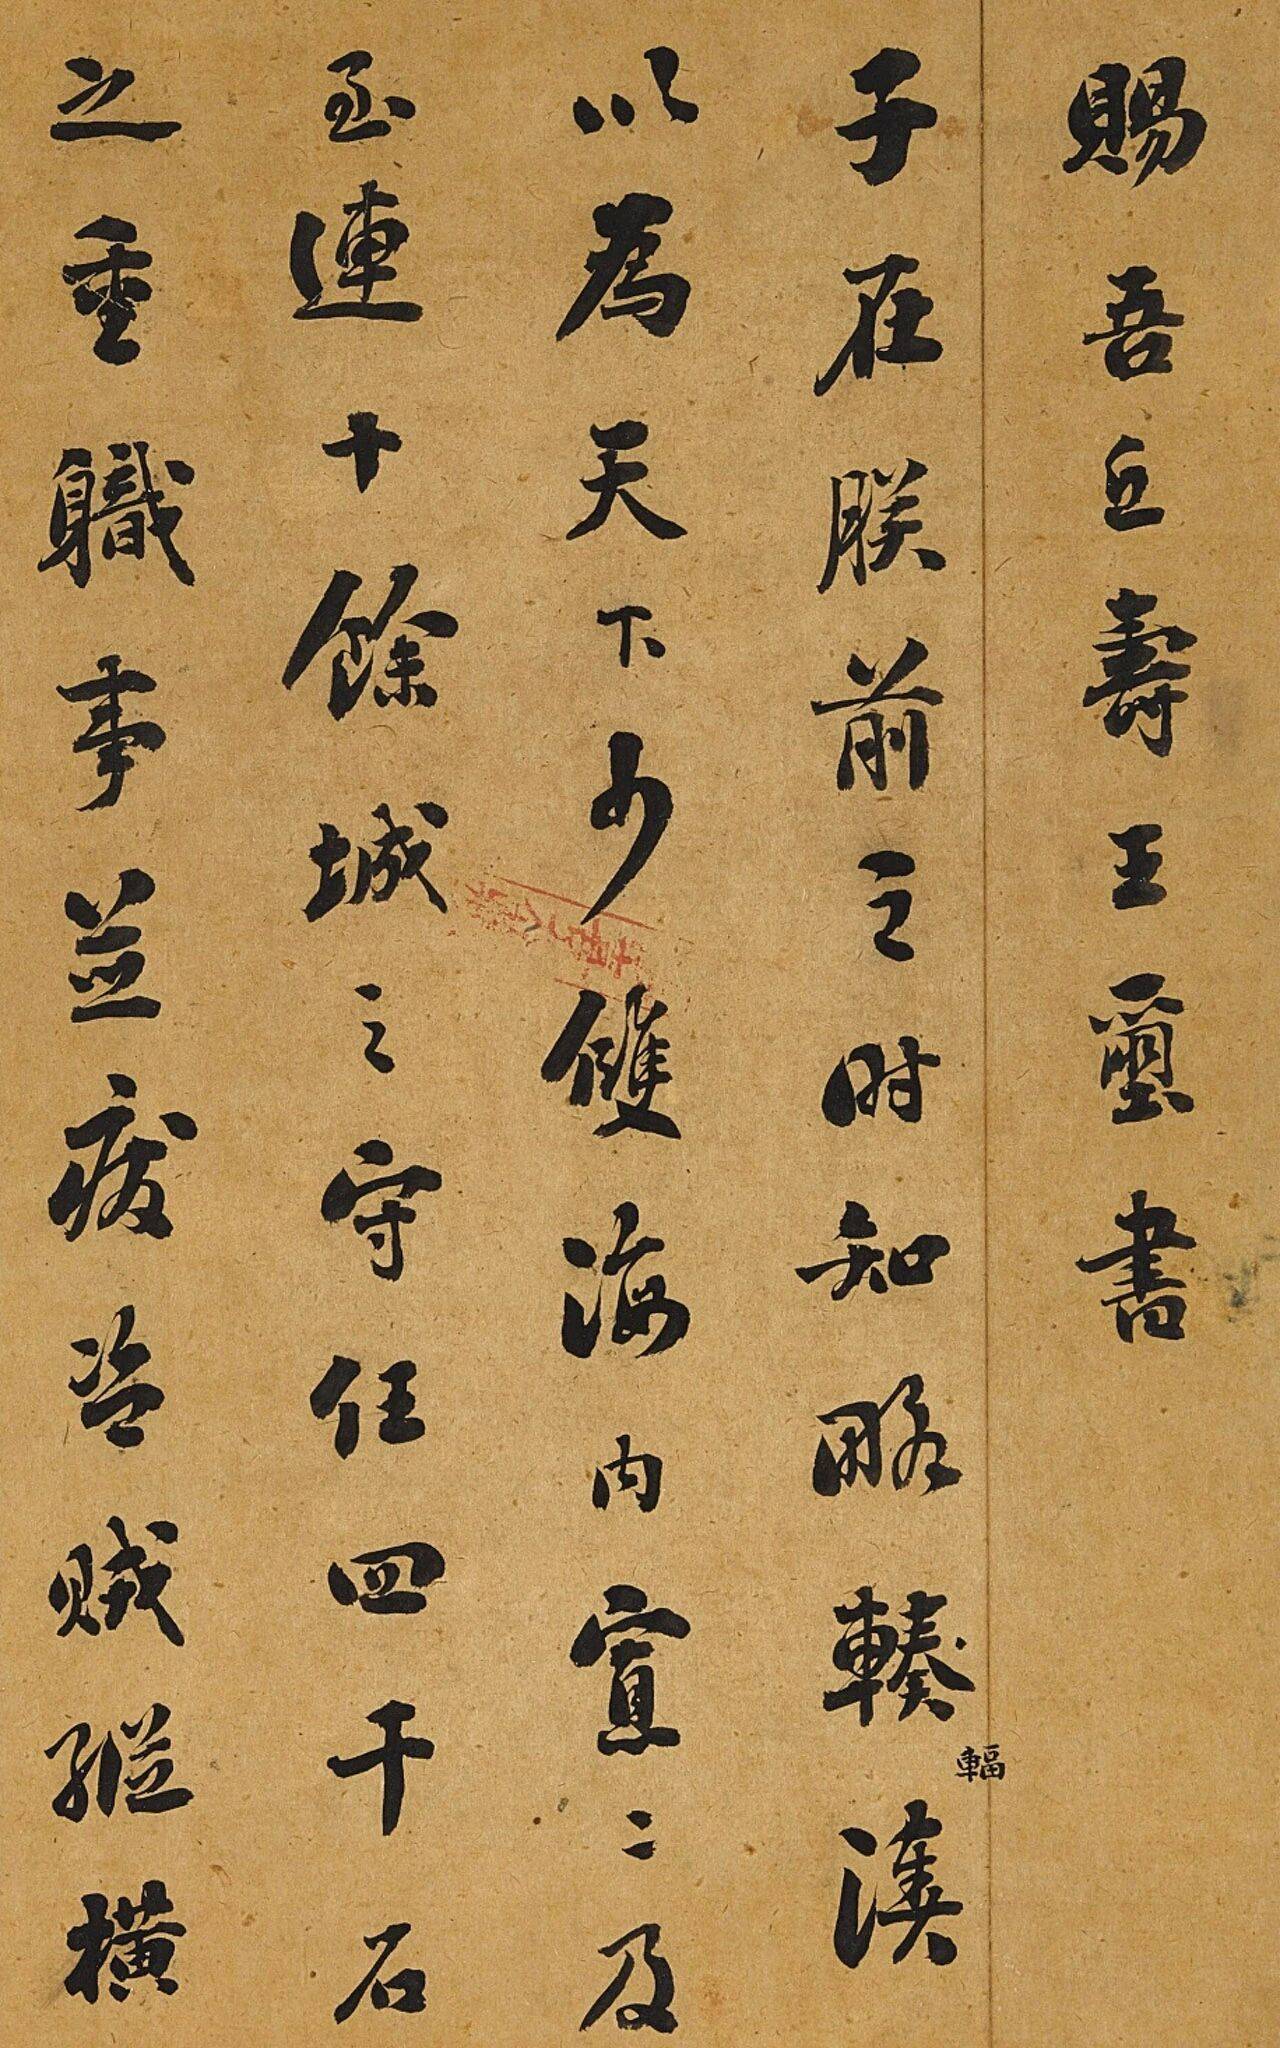 賜吾丘壽王璽書
子在朕前之時知略輳湊
輻
以為天下少雙海内寡二及
至連十餘城之守任四千石
之重職事並廢盜賊縱橫